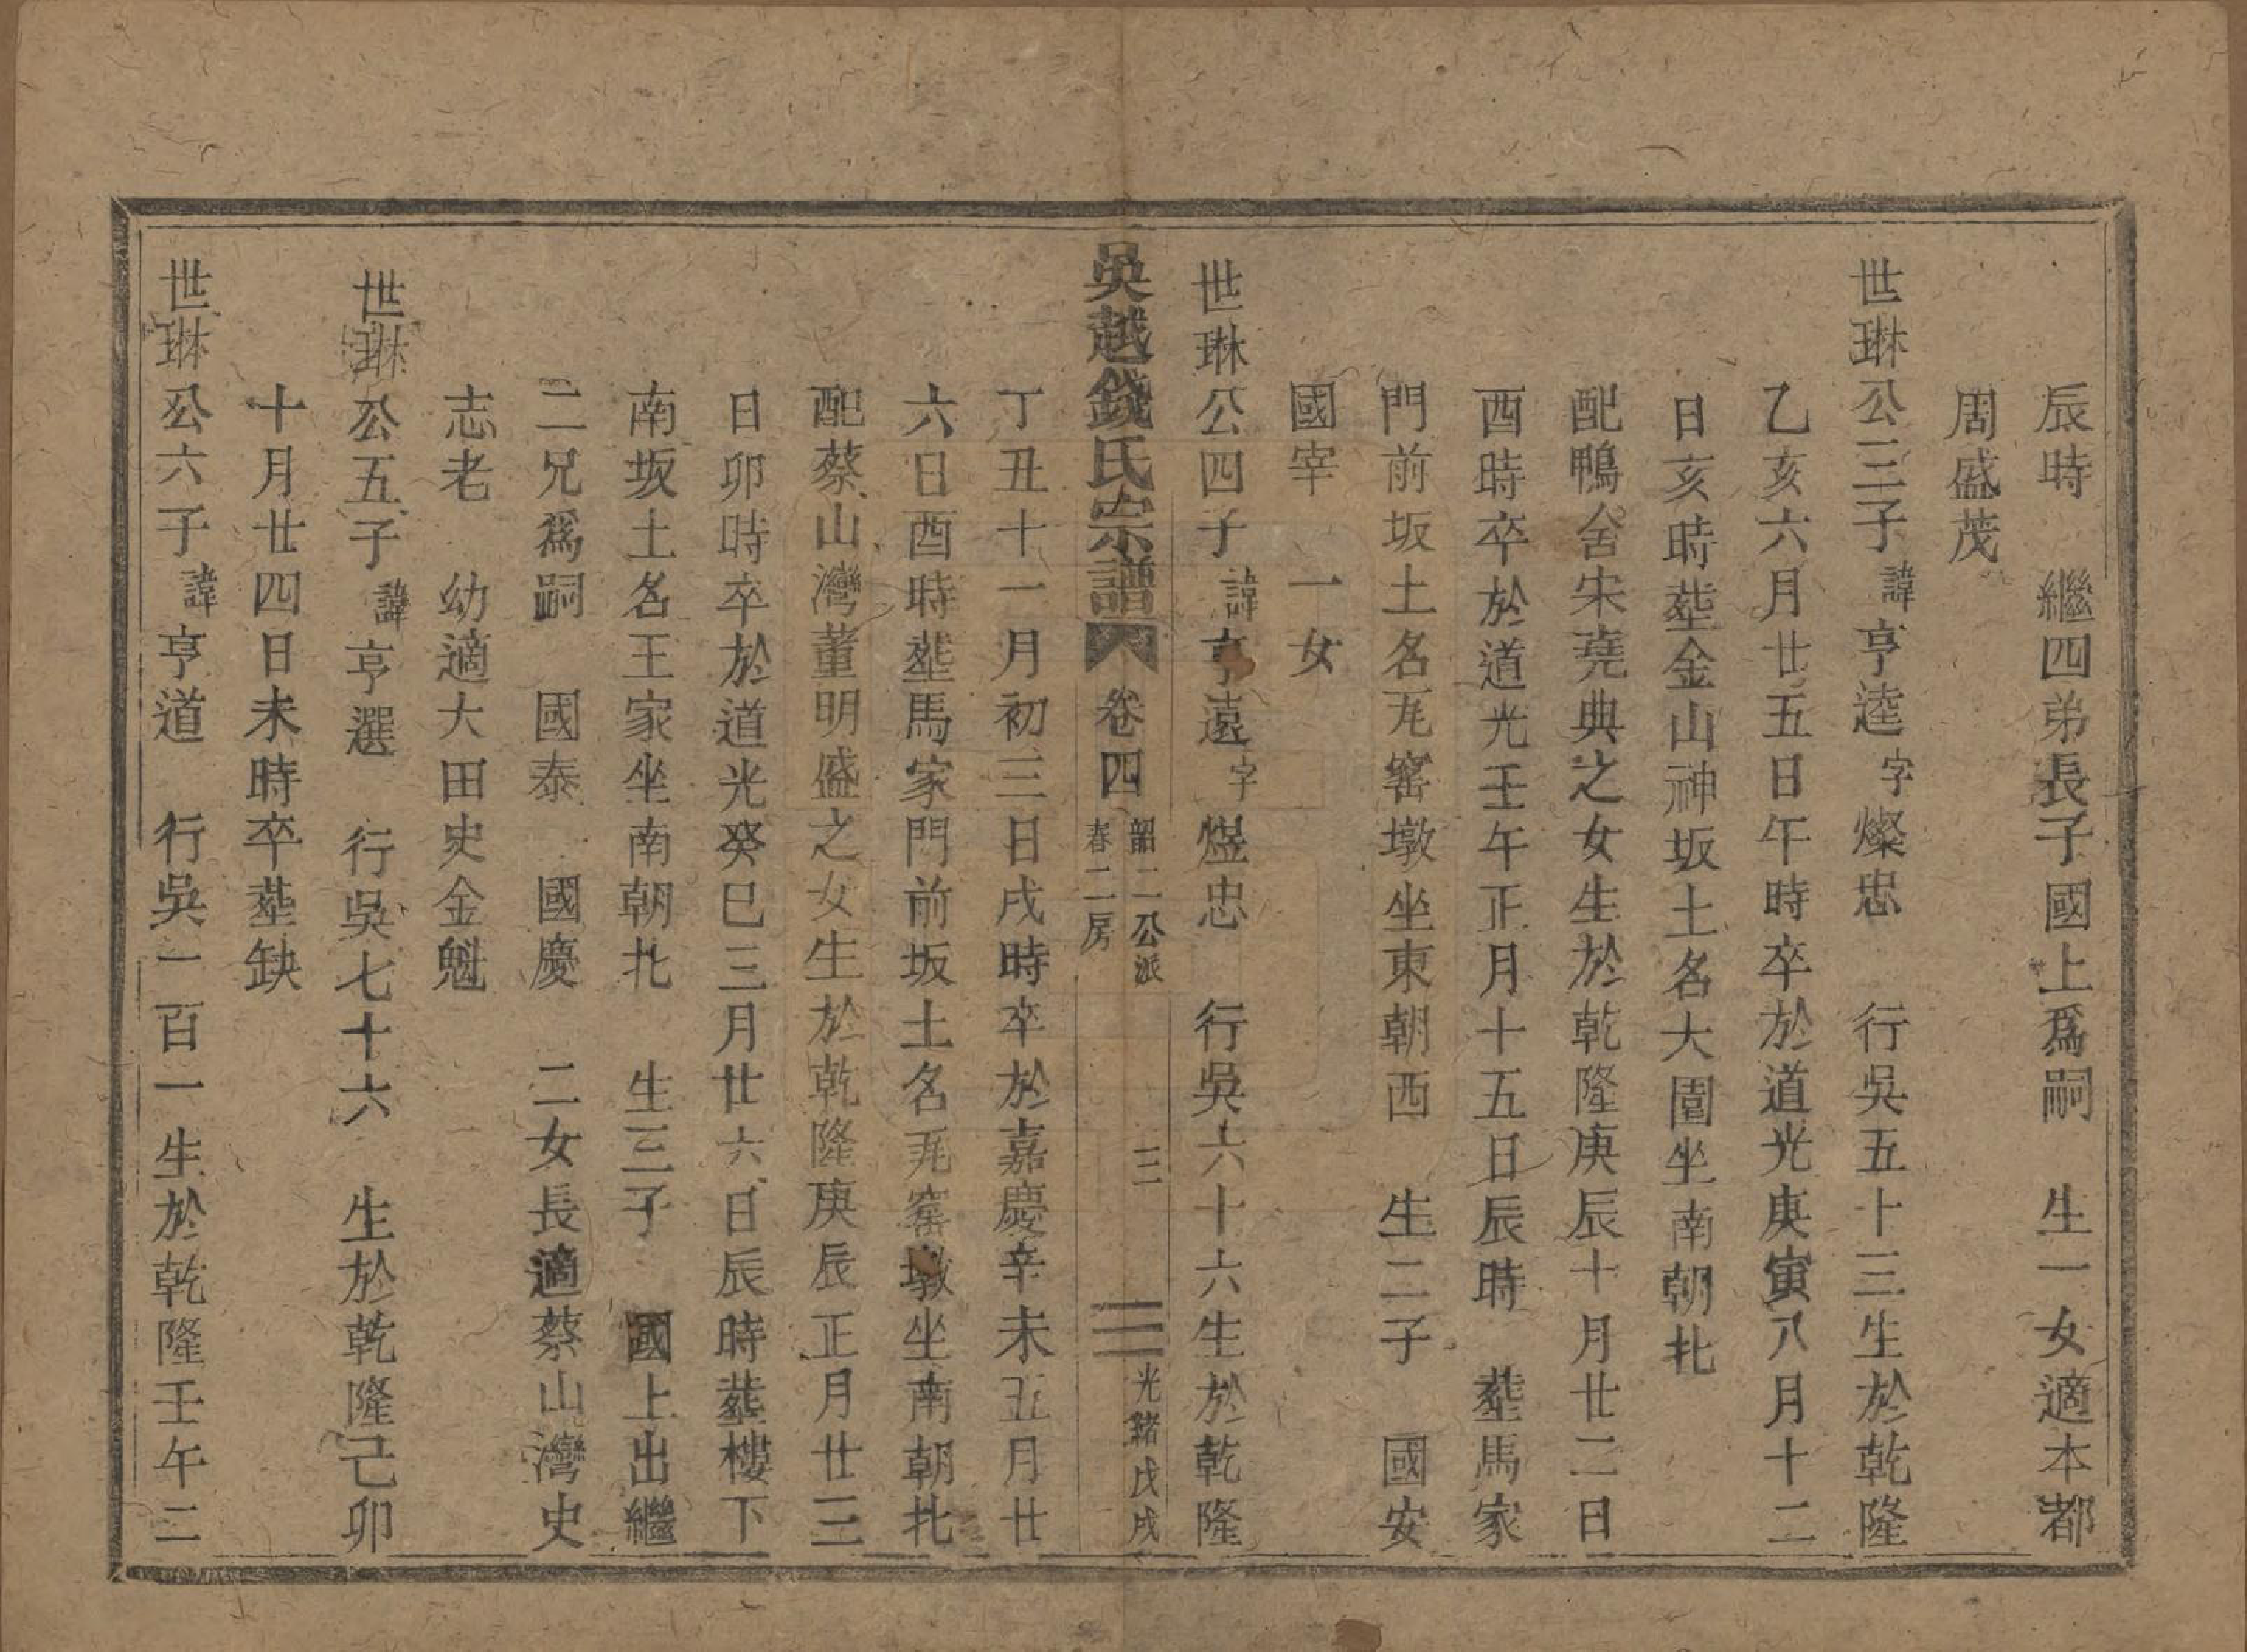 辰時　繼四弟長子國上爲嗣　生一女適本都
周盛茂
世琳公三子諱亨逵字燦忠　行吳五十三生於乾隆
乙亥六月廿五日午時卒於道光庚寅八月十二
日亥時塟金山神坂土名大園坐南朝北
配鴨舍宋堯典之女生於乾隆庚辰十月廿二日
酉時卒於道光壬午正月十五日辰時　塟馬家
門前坂土名瓦窰墩坐東朝西　生二子　國安
國宰　一女
世琳公四子諱亨遠字煜忠　行吳六十六生於乾隆
吳越錢氏宗譜　卷四　韶二公派　春二房　三　光緒戊戌
丁丑十一月初三日戌時卒於嘉慶辛未五月廿
六日酉時塟馬家門前坂土名瓦窰墩坐南朝北
配蔡山灣董明盛之女生於乾隆庚辰正月廿三
日卯時卒於道光癸巳三月廿六日辰時塟樓下
南坂土名王家坐南朝北　生三子　國上出繼
二兄爲嗣　國泰　國慶　二女長適蔡山灣史
志老　幼適大田史金魁
世琳公五子諱亨選　行吳七十六　生於乾隆己卯
十月廿四日未時卒塟缺
世琳公六子諱亨道　行吳一百一生於乾隆壬午二